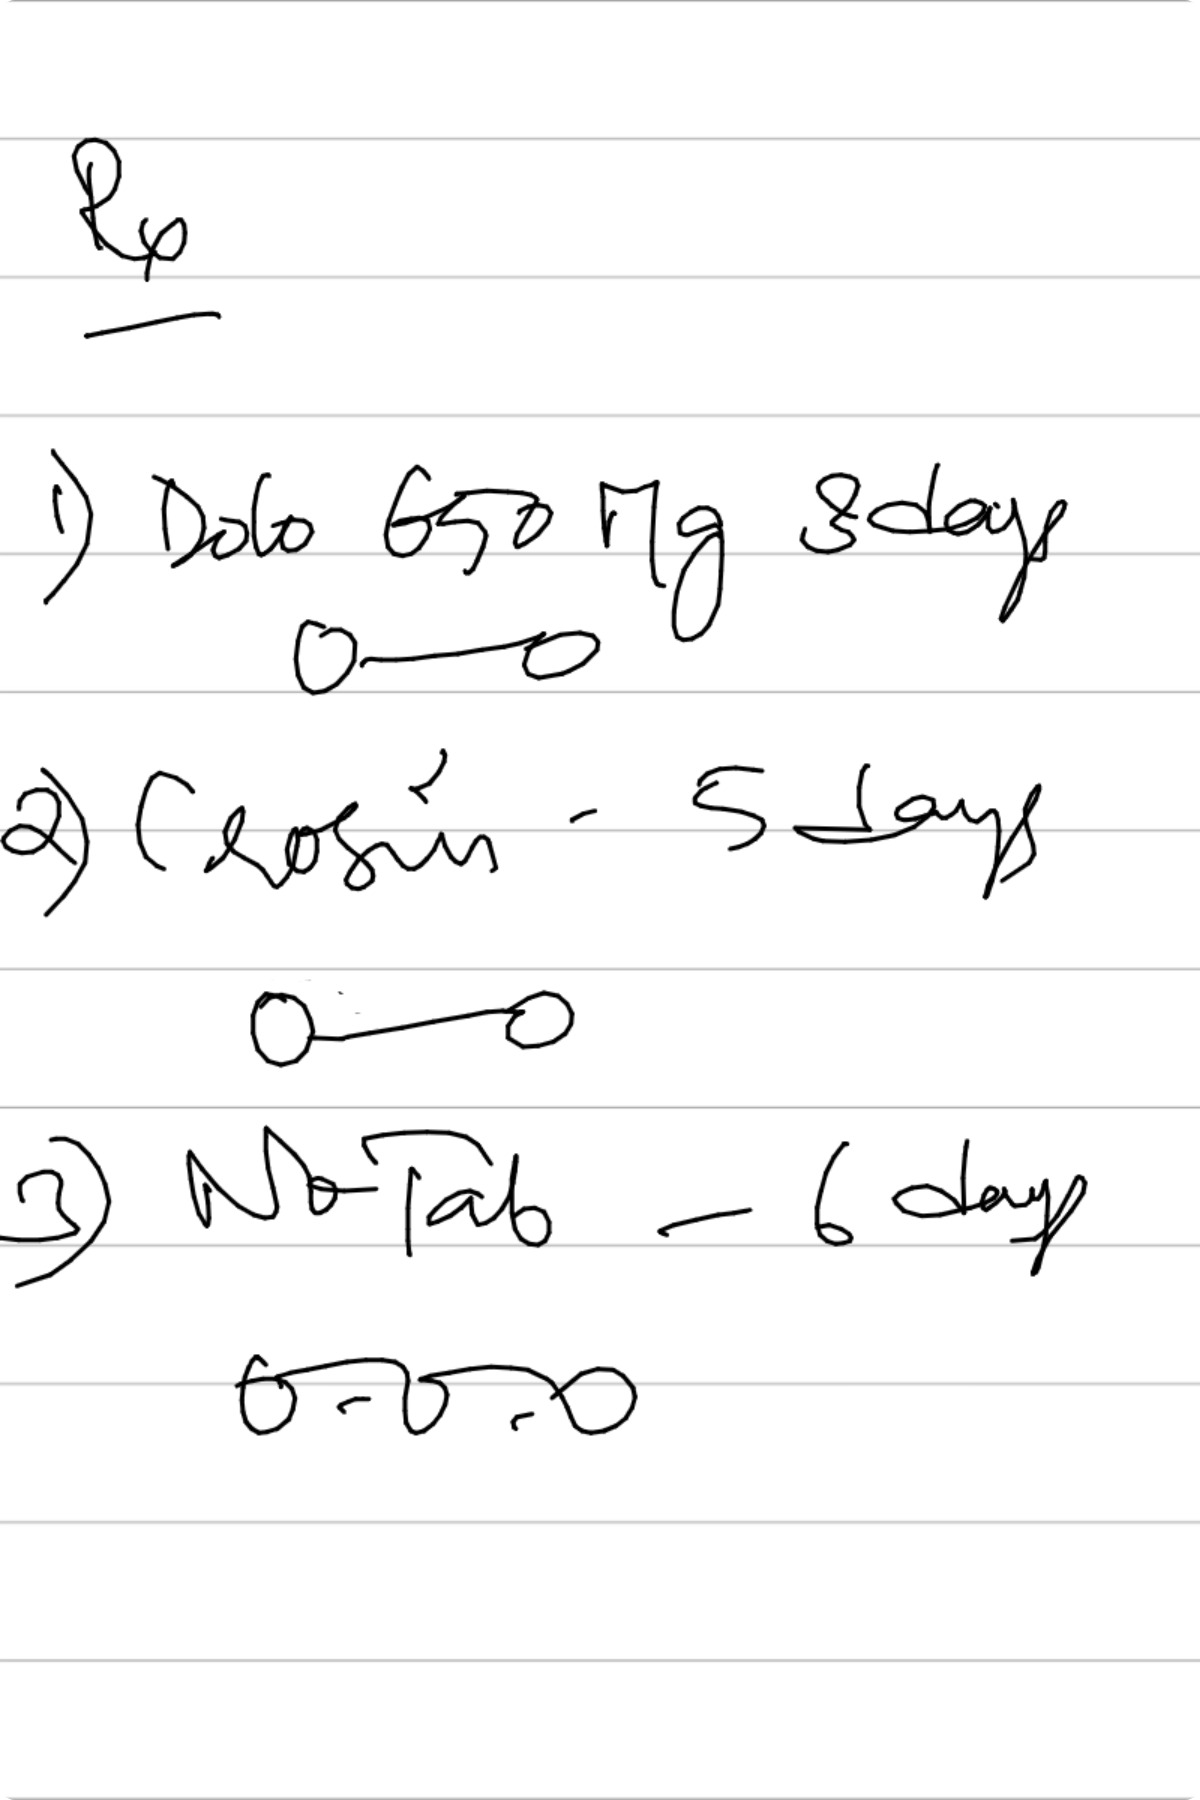 Rx
1) Dolo 650 Mg 3 days
0—0
2) Crosin - 5 days
0—0
3) No-Tab — 6 days
0-0-0